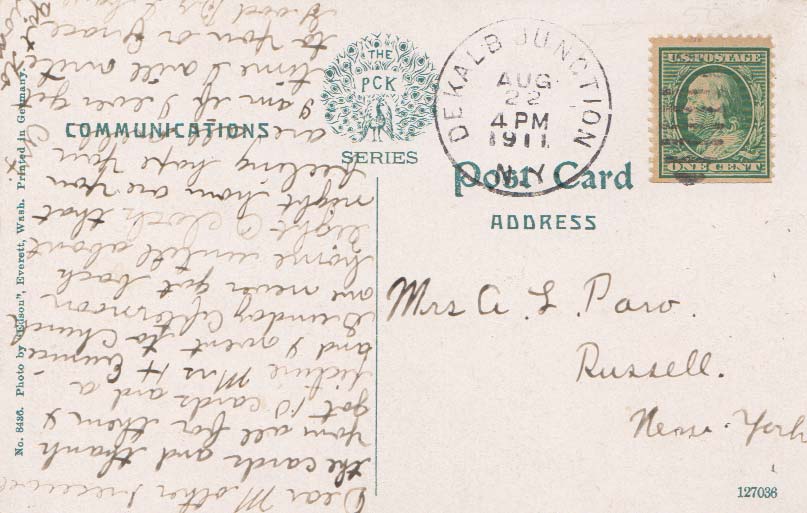 COMMUNICATIONS
THE
PCK
SERIES
DEKALB JUNCTION
AUG
22
4 PM
1911
N.Y.
U.S. POSTAGE
ONE CENT
Post Card
ADDRESS
Mrs A. L. Paro.
Russell.
New York
127036
No. 8486. Photo by "Edson", Everett, Wash. Printed in Germany.
Dear Mother I received
the cards and thank
you all for them I
got 10 cards and a
Mrs H Eunice
and I went to Church
Sunday afternoon
never got back
home untill about
eight O cloth that
night how are you
feeling hope you
are all
I am if I ever get
time I will write
to you or Grace
Good By